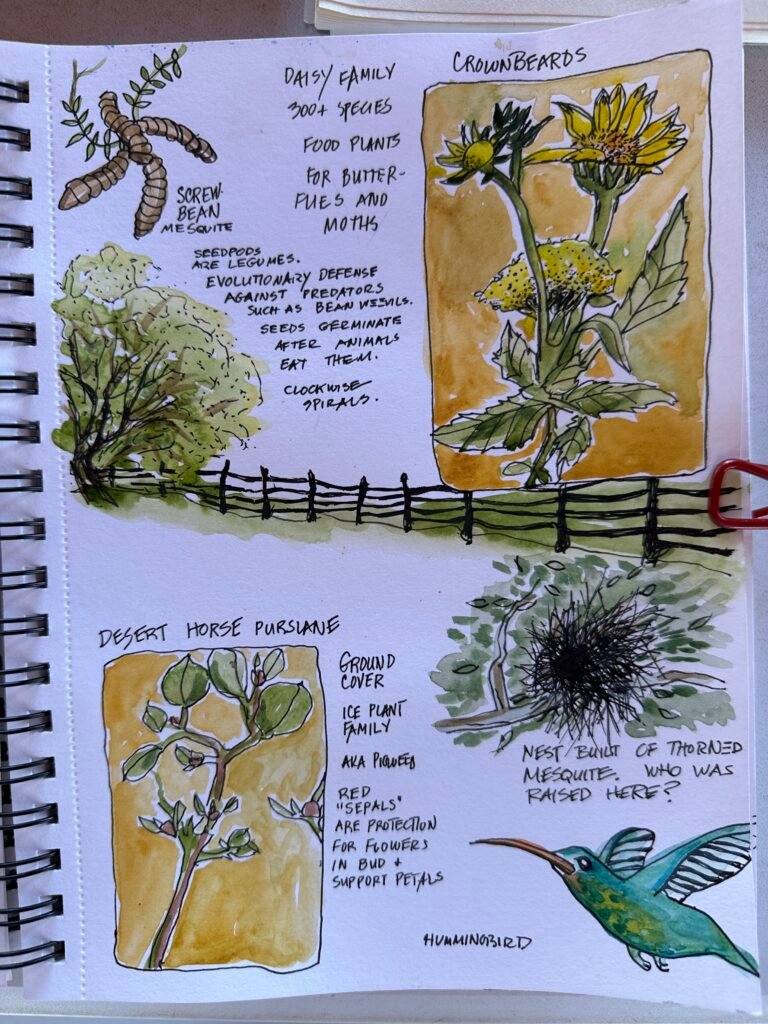 CROWNBEARDS
DAISY FAMILY
300+ SPECIES
FOOD PLANTS
FOR BUTTER-
FLIES AND
MOTHS
SCREW-
BEAN
MESQUITE
SEEDPODS
ARE LEGUMES.
EVOLUTIONARY DEFENSE
AGAINST PREDATORS
SUCH AS BEAN WEEVILS.
SEEDS GERMINATE
AFTER ANIMALS
EAT THEM.
CLOCKWISE
SPIRALS.
DESERT HORSE PURSLANE
GROUND
COVER
ICE PLANT
FAMILY
AKA PIGWEED
RED
"SEPALS"
ARE PROTECTION
FOR FLOWERS
IN BUD +
SUPPORT PETALS
NEST BUILT OF THORNED
MESQUITE. WHO WAS
RAISED HERE?
HUMMINGBIRD